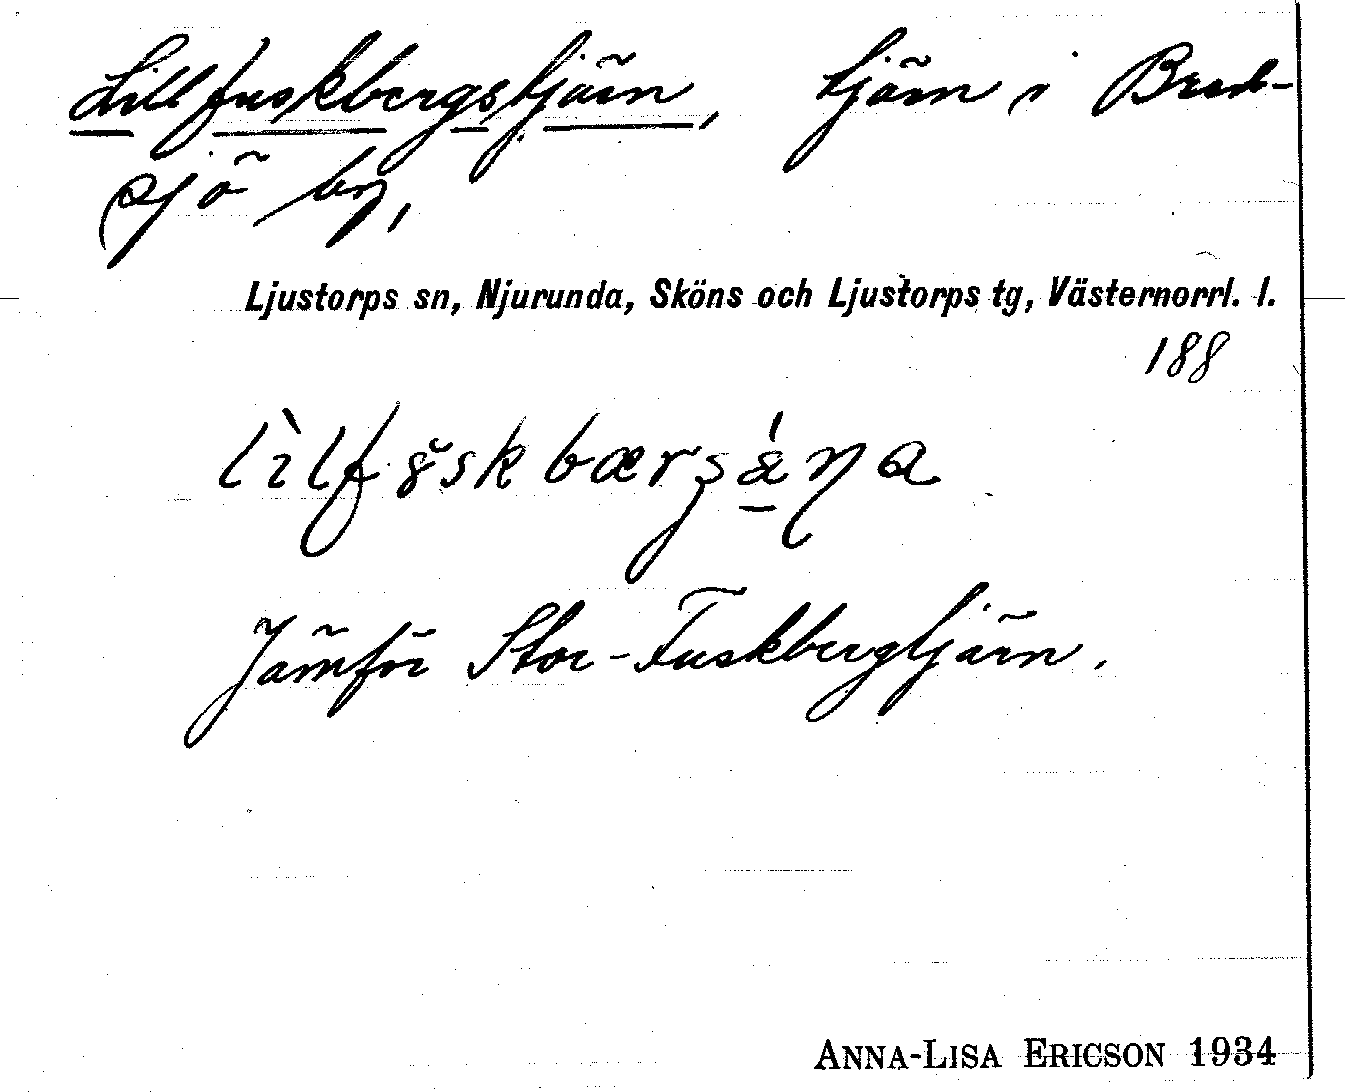 Lillfuskbergstjärn, tjärn i Bred-
sjö by,
Ljustorps sn, Njurunda, Sköns och Ljustorps tg, Västernorrl. l.
188
Jämför Stor-Fuskbergtjärn.
ANNA-LISA ERICSON 1934